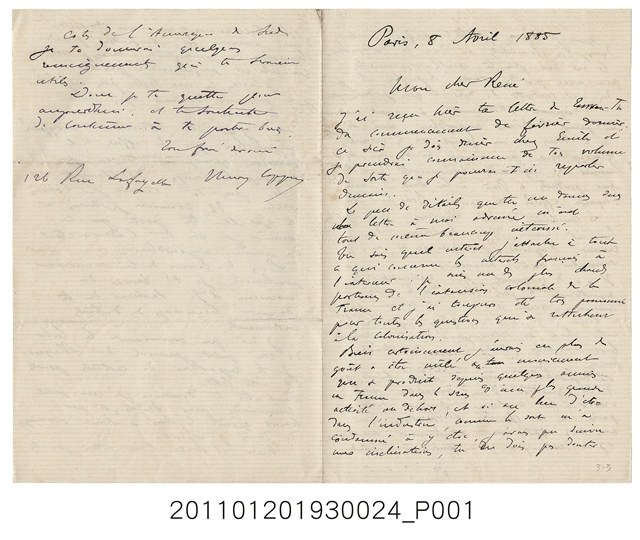 Paris, 8 Avril 1885
Mon cher René
J'ai reçu hier ta lettre de
du commencement de février dernier,
ce soir je dois dîner chez Emile et
je prendrai connaissance de ton volume
de sorte que je pourrai t'en reparler
demain.
Le peu de détails que tu me donnes dans
lettre à moi adressée m'ont
tout de même beaucoup intéressé.
Tu sais quel intérêt j'attache à tout
ce qui concerne les intérêts français à
l'extérieur. Je suis un des plus chauds
partisans de l'extension coloniale de la
France et j'ai toujours été très passionné
pour toutes les questions qui se rattachent
à la colonisation.
Bien certainement j'aurais eu plus de
goût à être mêlé au mouvement
qui se produit depuis quelques années
en France dans le sens d'une plus grande
activité au dehors, et si au lieu d'être
dans l'industrie comme le sort m'a
condamné à y être, j'avais pu suivre
mes inclinations, tu ne dois pas douter
313
côté de l'
je te donnerai quelques
renseignements qui te seraient
utiles.
Donc je te quitte pour
aujourd'hui, et te souhaite
de continuer à te porter bien.
Ton frère dévoué
126 Rue Lafayette Henry
201101201930024_P001